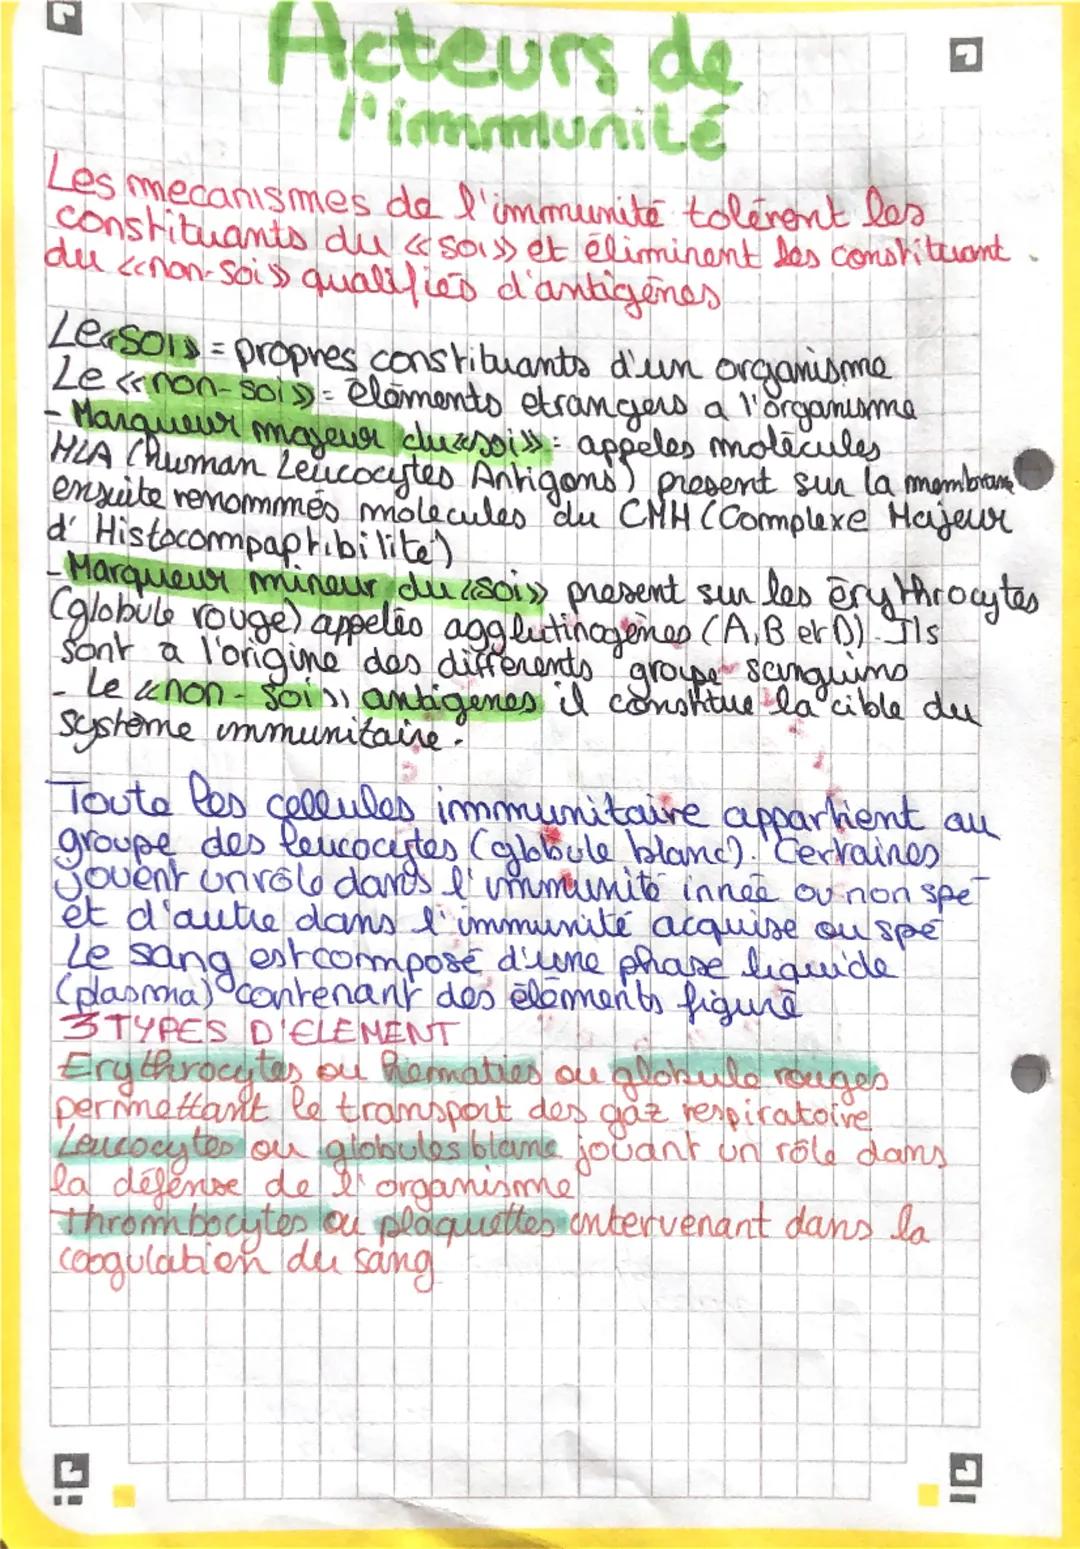 Acteurs de
l'immunité
Les mecanismes de l'immunité tolèrent les
constituants du «soi» et éliminent les constituant
du «non-soi» qualifiés d'antigènes
Le «soi» = propres constituants d'un organisme
Le «non-soi» = éléments etrangers a l'organisme
- Marqueur majeur du «soi» : appeles molécules
HLA (human Leucocytes Antigens) present sur la membrane
ensuite renommés molecules du CMH (Complexe Majeur
d'Histocompaptibilite)
- Marqueur mineur du «soi» present sur les érythrocytes
(globule rouge) appelés agglutinogènes (A, B et D). Ils
sont a l'origine des différents groupe sanguins
- Le «non-soi» antigenes il constitue la cible du
système immunitaire.
Toute les cellules immunitaire appartient au
groupe des leucocytes (globule blanc). Certaines
jouent un rôle dans l'immunité innée ou non spé
et d'autre dans l'immunité acquise ou spé
Le sang est composé d'une phase liquide
(plasma) contenant des éléments figuré
3 TYPES D'ELEMENT
Erythrocytes ou hematies ou globule rouges
permettant le transport des gaz respiratoire
Leucocytes ou globules blanc jouant un rôle dans
la défense de l'organisme
Thrombocytes ou plaquettes intervenant dans la
coagulation du sang